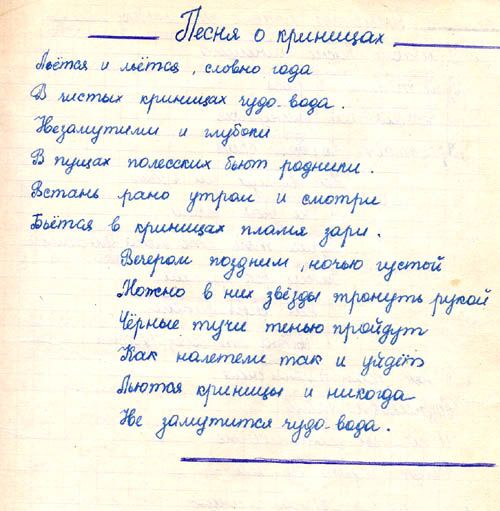 Песня о криницах
Льётся и льётся, словно года
В чистых криницах чудо-вода.
Незамутими и глубоки
В пущах полесских бьют родники.
Встань рано утром и смотри
Бьётся в криницах пламя зари.
Вечером поздним, ночью густой
Можно в них звёзды тронуть рукой
Чёрные тучи тенью пройдут
Как налетели так и уйдёт
Льются криницы и никогда
Не замутится чудо-вода.